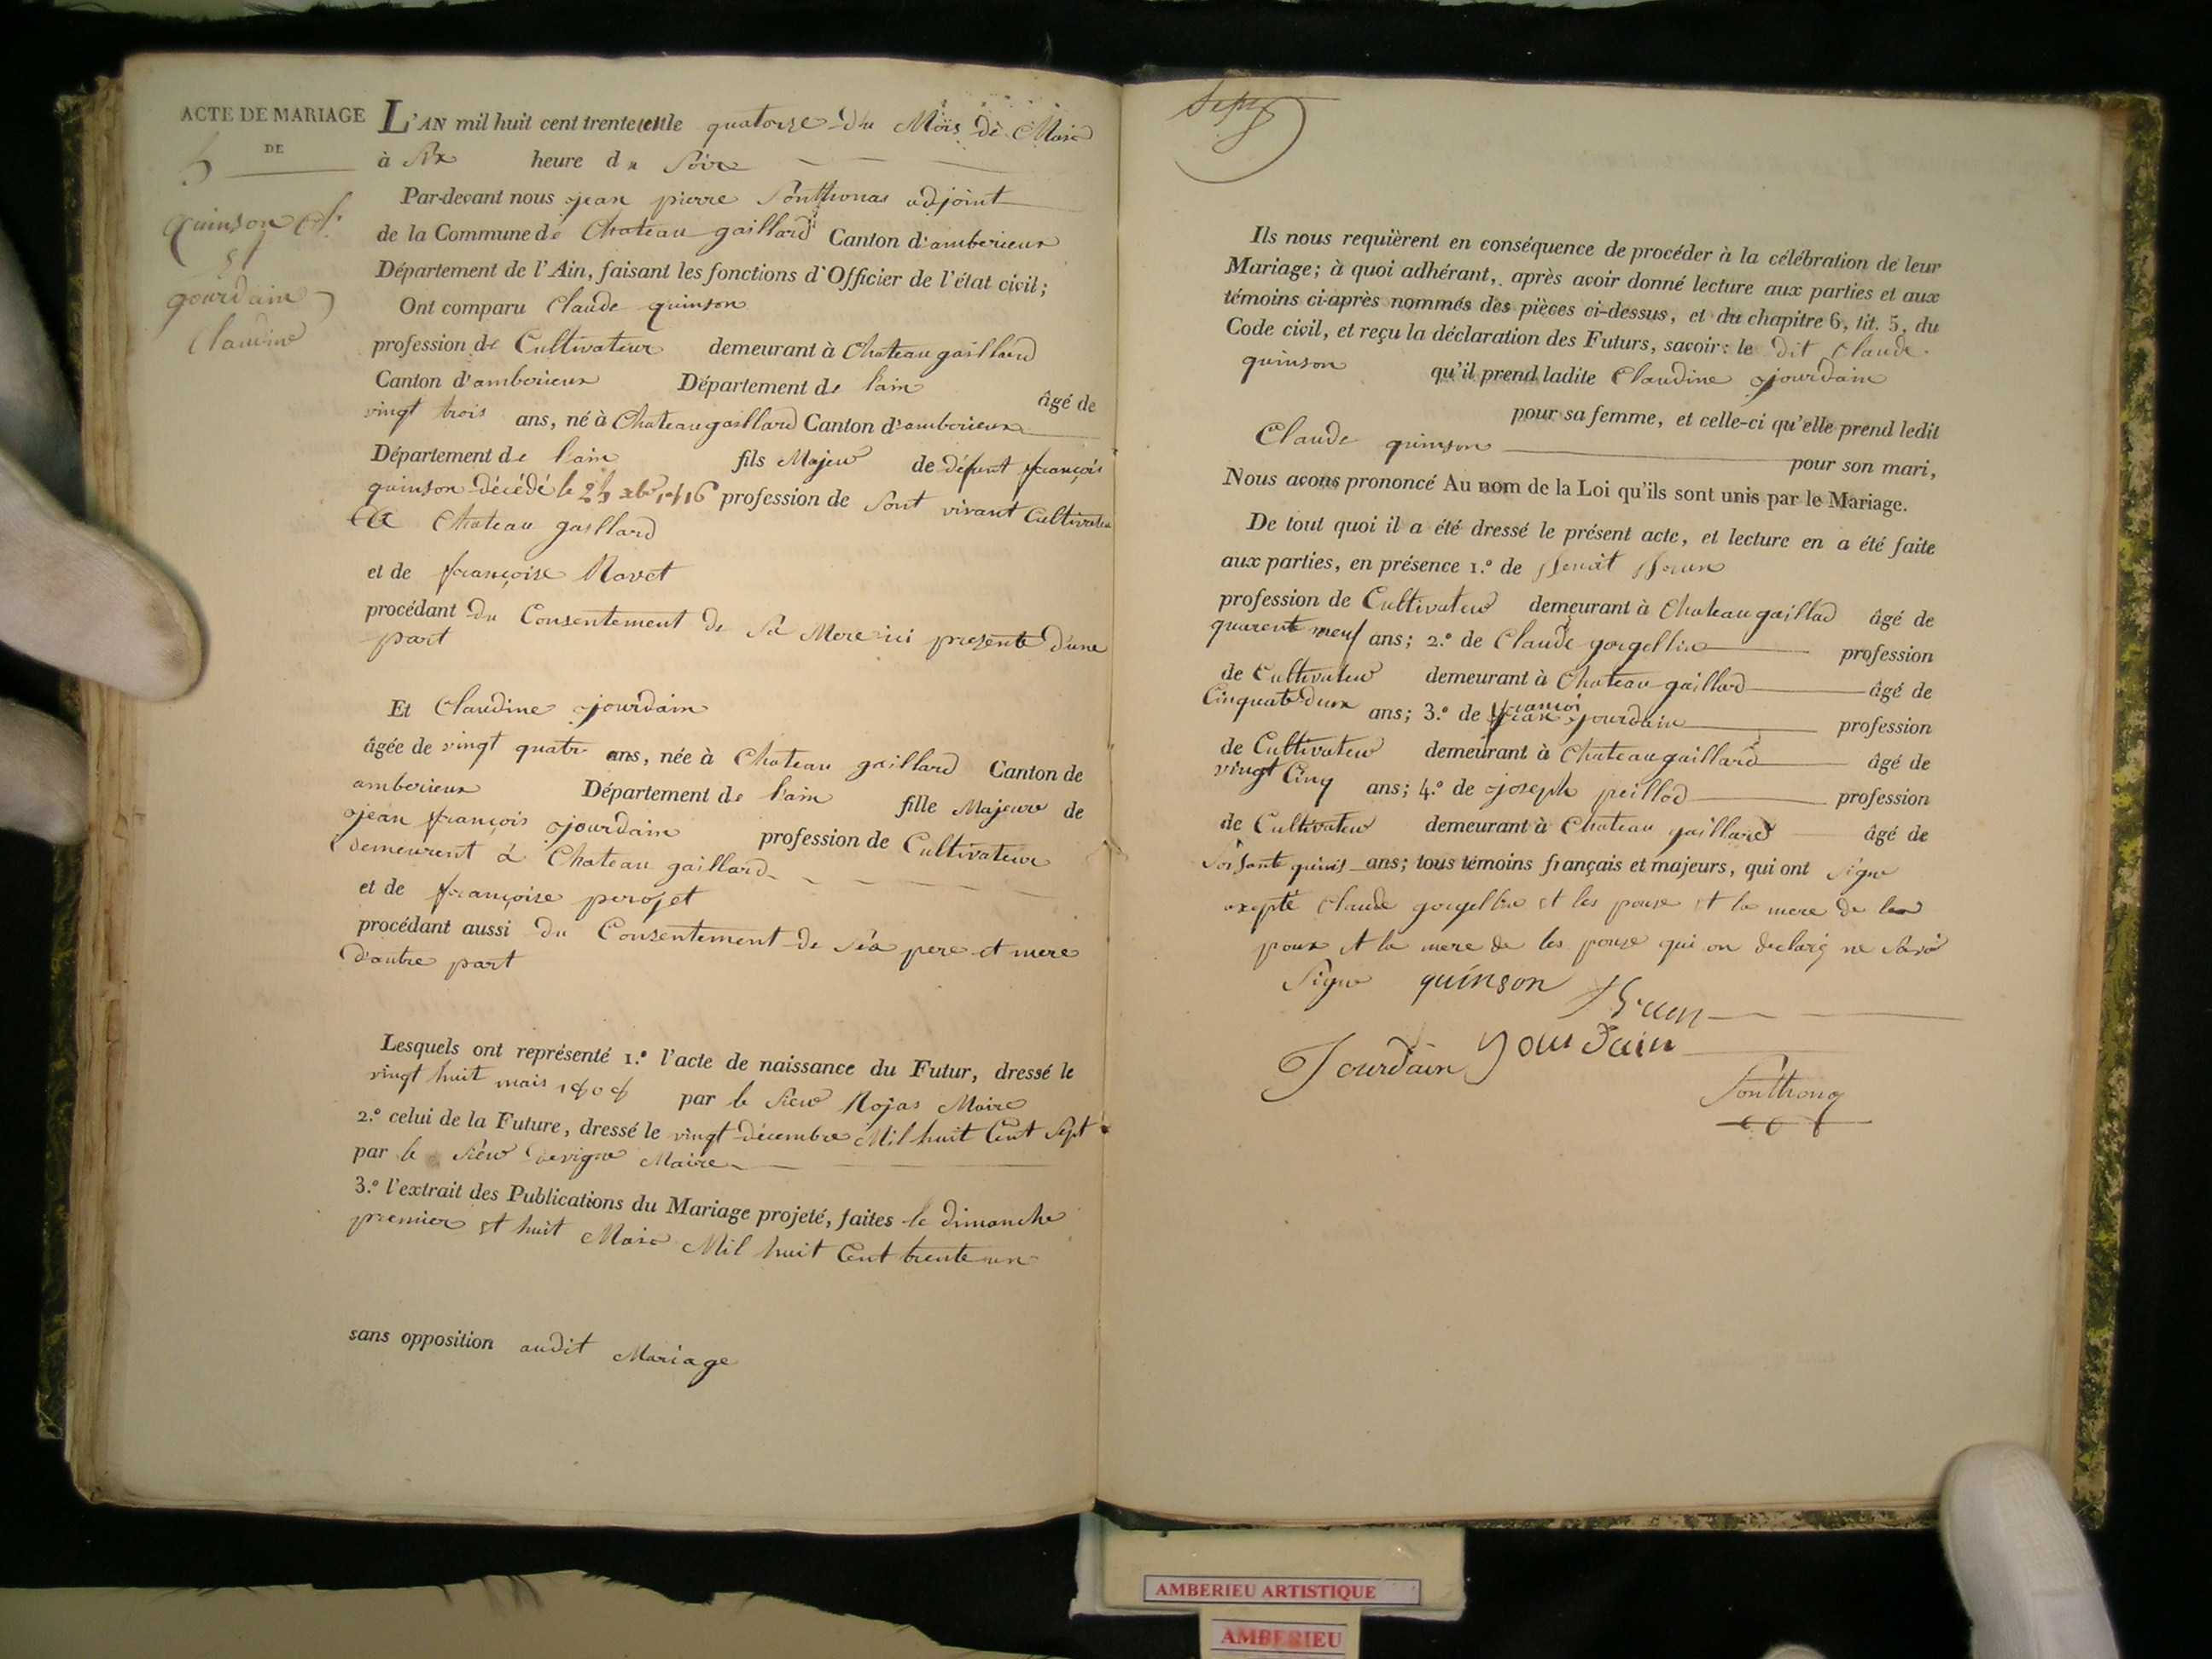 ACTE DE MARIAGE
DE
5
quinson Cl.
et
jourdain
Claudine
L'AN mil huit cent trente et le quatorze du Mois de Mars
à Six heure du Soire
Par-devant nous jean pierre Ponthonas adjoint
de la Commune de Chateau gaillard Canton d'amberieux
Département de l'Ain, faisant les fonctions d'Officier de l'état civil;
Ont comparu Claude quinson
profession de Cultivateur demeurant à Chateau gaillard
Canton d'amberieux Département de l'ain âgé de
vingt trois ans, né à Chateau gaillard Canton d'amberieux
Département de l'ain fils Majeur de défunt françois
quinson décédé le 25 xbre 1816 profession de Sont vivant Cultivateur
a Chateau gaillard
et de françoise Ravet
procédant du Consentement de Sa Mere ici presente d'une
part
Et Claudine jourdain
âgée de vingt quatre ans, née à Chateau gaillard Canton de
amberieux Département de l'ain fille Majeure de
jean françois jourdain profession de Cultivateur
demeurent à Chateau gaillard
et de françoise perojet
procédant aussi du Consentement de Sés pere et mere
d'autre part
Lesquels ont représenté 1.º l'acte de naissance du Futur, dressé le
vingt huit mais 1808 par le Sieur Rojas Maire
2.º celui de la Future, dressé le vingt décembre Mil huit Cent Sept
par le Sieur Maire
3.º l'extrait des Publications du Mariage projeté, faites le dimanche
premier et huit Mars Mil huit Cent trente un
sans opposition audit Mariage
Sept
Ils nous requièrent en conséquence de procéder à la célébration de leur
Mariage; à quoi adhérant, après avoir donné lecture aux parties et aux
témoins ci-après nommés des pièces ci-dessus, et du chapitre 6, tit. 5, du
Code civil, et reçu la déclaration des Futurs, savoir: le dit Claude
quinson qu'il prend ladite Claudine jourdain
pour sa femme, et celle-ci qu'elle prend ledit
Claude quinson pour son mari,
Nous avons prononcé Au nom de la Loi qu'ils sont unis par le Mariage.
De tout quoi il a été dressé le présent acte, et lecture en a été faite
aux parties, en présence 1.º de Benoit Brun
profession de Cultivateur demeurant à Chateau gaillad âgé de
quarente neuf ans; 2.º de Claude gorgellin profession
de Cultivateur demeurant à Chateau gaillard âgé de
Cinquate deux ans; 3.º de françoi jourdain profession
de Cultivateur demeurant à Chateau gaillard âgé de
vingt Cinq ans; 4.º de joseph peillod profession
de Cultivateur demeurant à Chateau gaillard âgé de
Soisante quinis ans; tous témoins français et majeurs, qui ont Signe
exepté Claude gorgellin et les pouse et la mere de les
poux et la mere de les pouse qui on declaré ne Savoi
Signe quinson Brun
Jourdain Jourdain
Ponthonas
AMBERIEU ARTISTIQUE
AMBERIEU